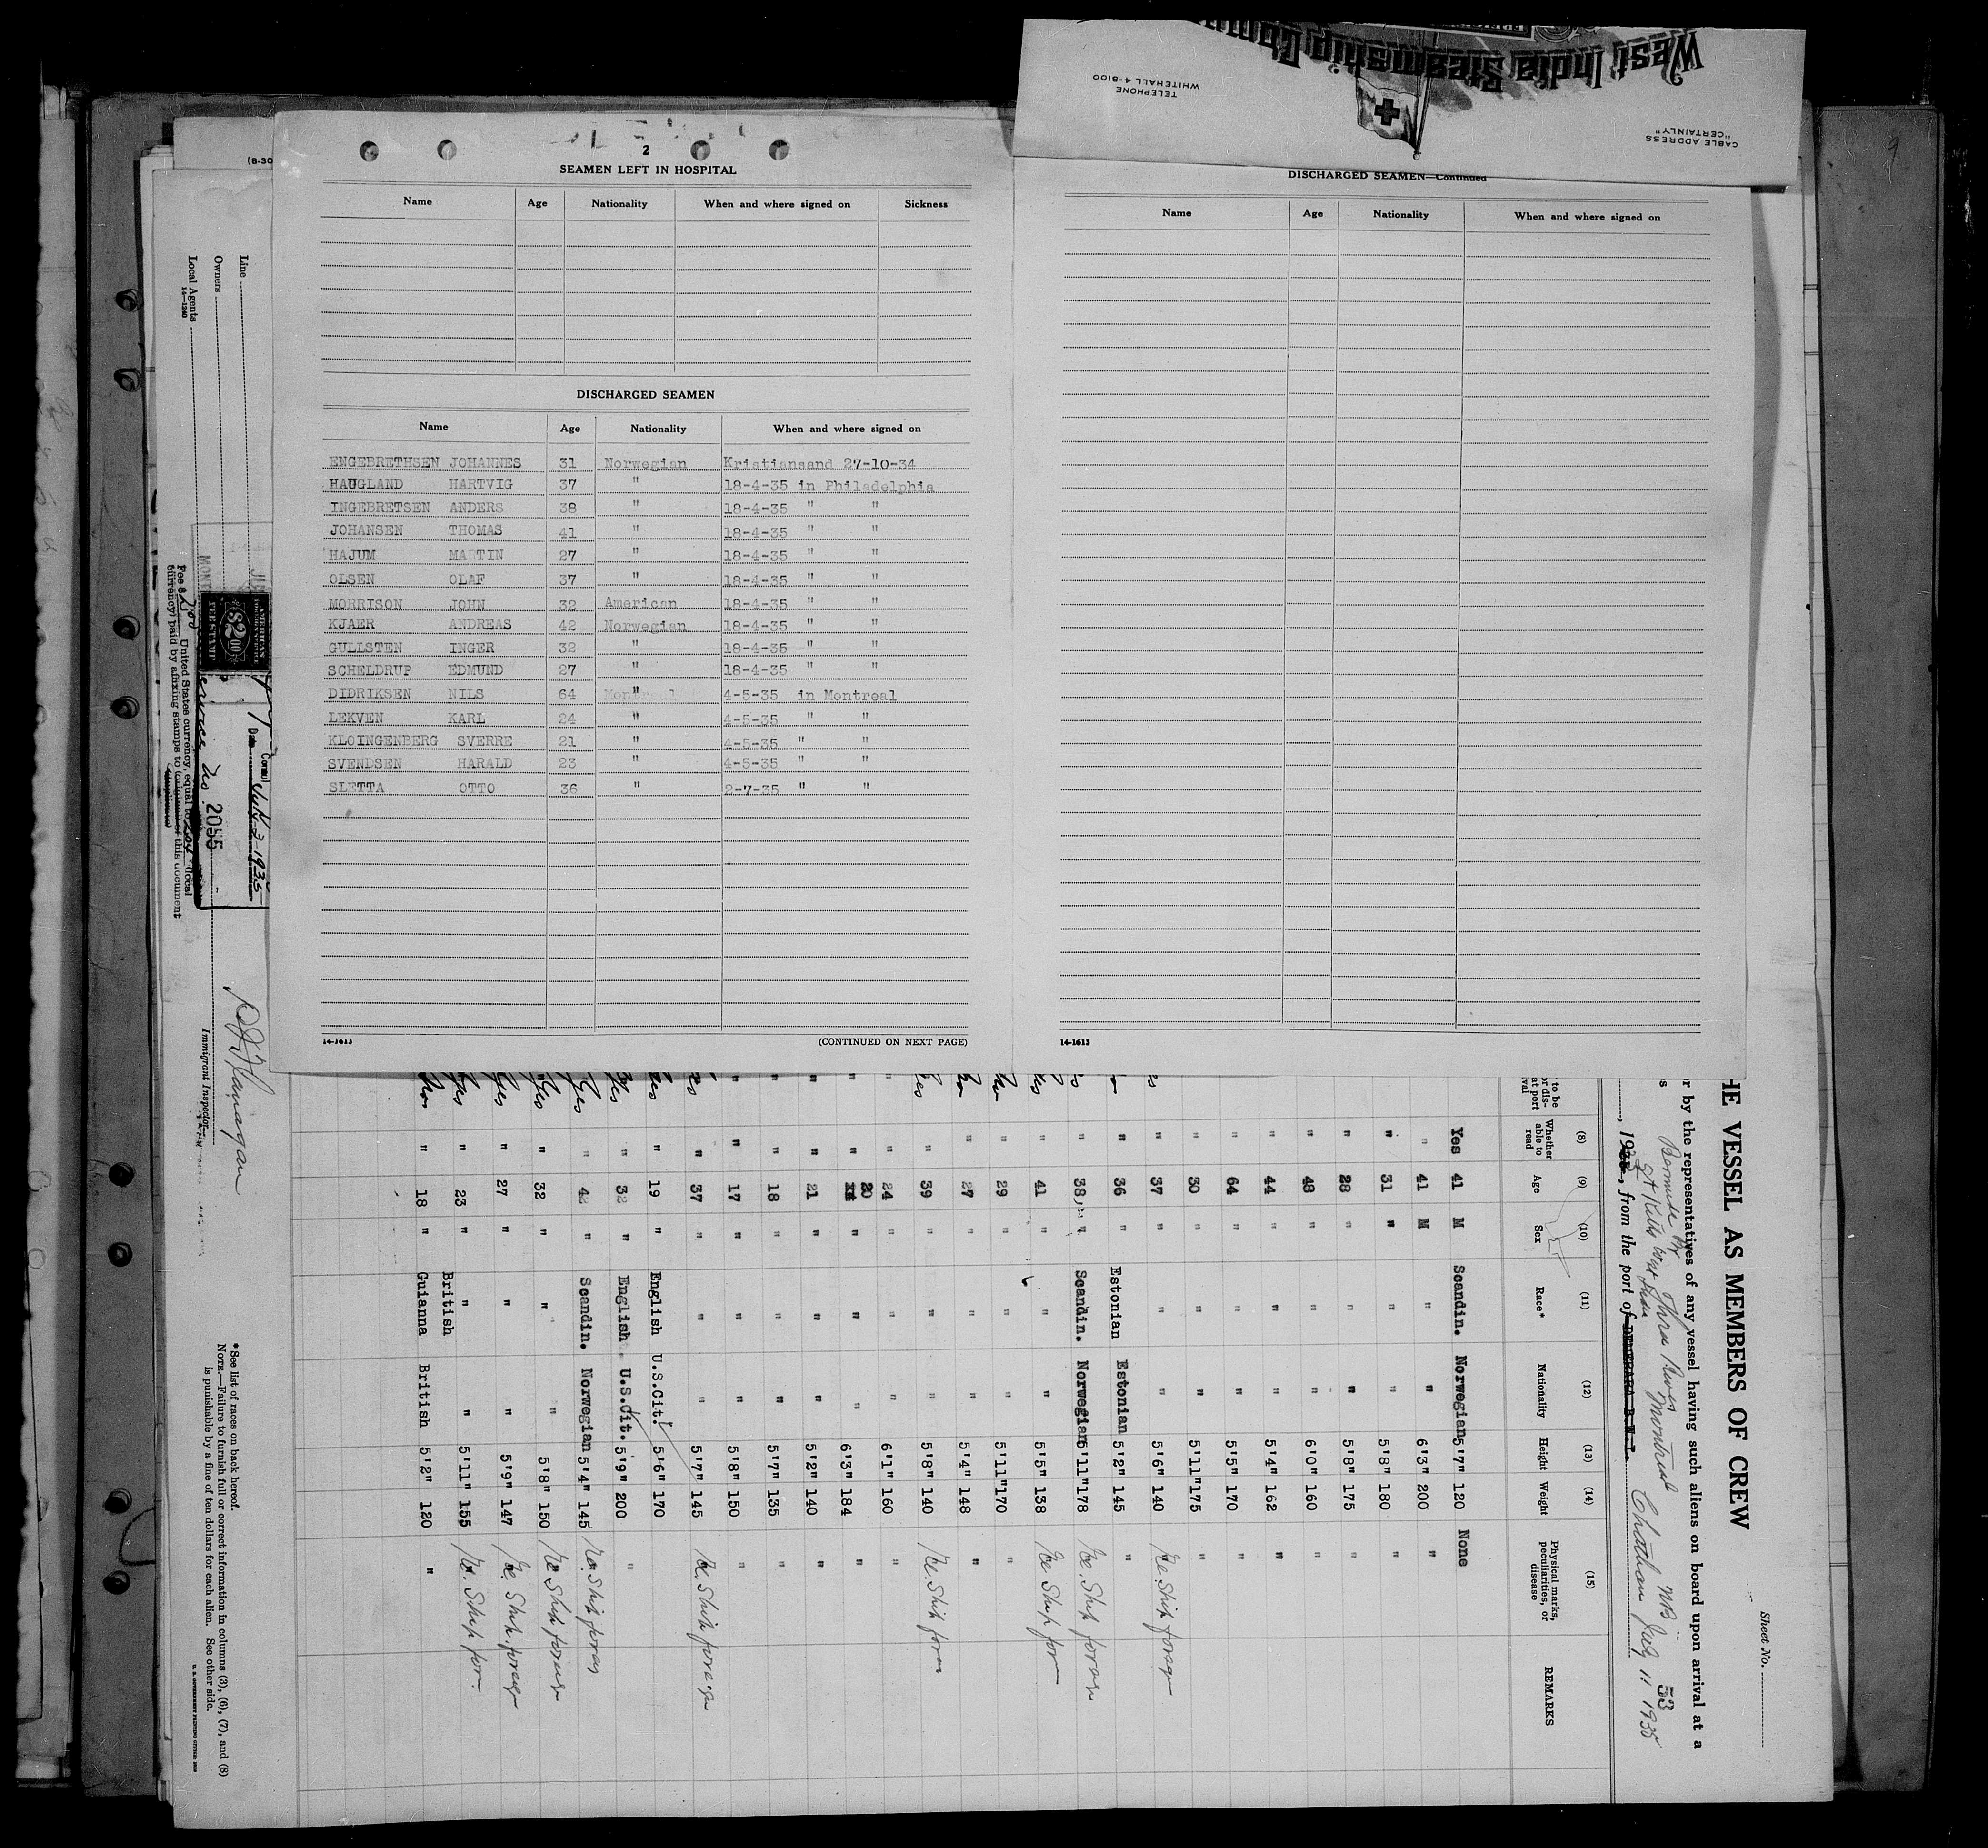 2
SEAMEN LEFT IN HOSPITAL
Name Age Nationality When and where signed on Sickness
DISCHARGED SEAMEN
Name Age Nationality When and where signed on
ENGEBRETHSEN JOHANNES 31 Norwegian Kristiansand 27-10-34
HAUGLAND HARTVIG 37 " 18-4-35 in Philadelphia
INGEBRETSEN ANDERS 38 " 18-4-35 " "
JOHANSEN THOMAS 41 " 18-4-35 " "
HAJUM MARTIN 27 " 18-4-35 " "
OLSEN OLAF 37 " 18-4-35 " "
MORRISON JOHN 32 American 18-4-35 " "
KJAER ANDREAS 42 Norwegian 18-4-35 " "
GULLSTEN INGER 32 " 18-4-35 " "
SCHELDRUP EDMUND 27 " 18-4-35 " "
DIDRIKSEN NILS 64 " 4-5-35 in Montreal
LEKVEN KARL 24 " 4-5-35 " "
KLOINGENBERG SVERRE 21 " 4-5-35 " "
SVENDSEN HARALD 23 " 4-5-35 " "
SLETTA OTTO 36 " 2-7-35 " "
14-1613 (CONTINUED ON NEXT PAGE)
West India Steamship Company
TELEPHONE
WHITEHALL 4-8100
CABLE ADDRESS
"CERTAINLY"
DISCHARGED SEAMEN—Continued
Name Age Nationality When and where signed on
14-1613
Sheet No.
HE VESSEL AS MEMBERS OF CREW
r by the representatives of any vessel having such aliens on board upon arrival at a
53
, from the port of Montreal Chatham NB July 11 1935
(8) (9) (10) (11) (12) (13) (14) (15)
Whether able to read Age Sex Race* Nationality Height Weight Physical marks, peculiarities, or disease REMARKS
Yes 41 M Scandin. Norwegian 5'7" 120 None
" 41 M " " 6'3" 200 "
" 31 " " " 5'8" 180 "
" 28 " " " 5'8" 175 "
" 48 " " " 6'0" 160 "
" 44 " " " 5'4" 162 "
" 64 " " " 5'5" 170 "
" 30 " " " 5'11" 175 "
" 37 " " " 5'6" 140
" 36 " Estonian Estonian 5'2" 145 "
" 38 " Scandin. Norwegian 5'11" 178
" 41 " " " 5'5" 138
" 29 " " " 5'11" 170 "
" 27 " " " 5'4" 148 "
" 39 " " " 5'8" 140
" 24 " " " 6'1" 160 "
" 20 " " " 6'3" 184 "
" 21 " " " 5'2" 140 "
" 18 " " " 5'7" 135 "
" 17 " " " 5'8" 150 "
" 37 " " " 5'7" 145
" 19 " English U.S.Cit. 5'6" 170
" 32 " English U.S.Cit. 5'9" 200 "
" 42 " Scandin. Norwegian 5'4" 145
" 32 " " " 5'8" 150
" 27 " " " 5'9" 147
" 23 " " " 5'11" 155
" 18 " British Guiana British 5'2" 120 "
*See list of races on back hereof.
NOTE.—Failure to furnish full or correct information in columns (3), (6), (7), and (8)
is punishable by a fine of ten dollars for each alien. See other side.
Line
Owners
Local Agents
14-1240
Immigrant Inspector
Consul
Date July 2-1935
Service No. 2055
AMERICAN
$2.00
FEE STAMP
United States currency, equal to
currency) paid by affixing stamps to
this document